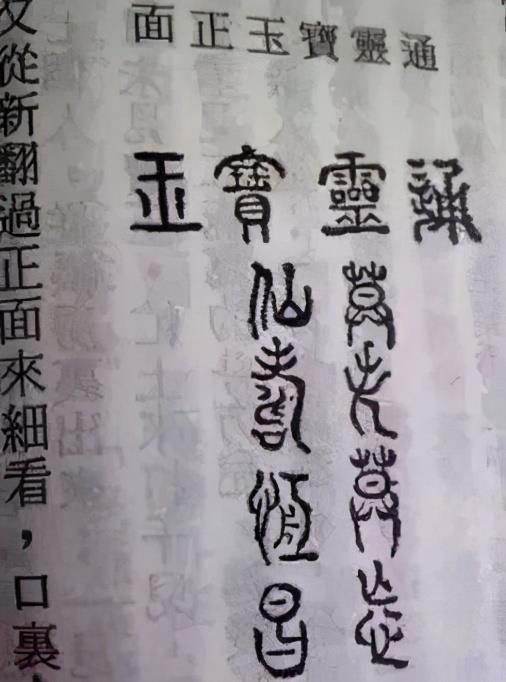 通靈寶玉正面
通靈寶玉
莫失莫忘
仙壽恆昌
文從新翻過正面來細看，口裏